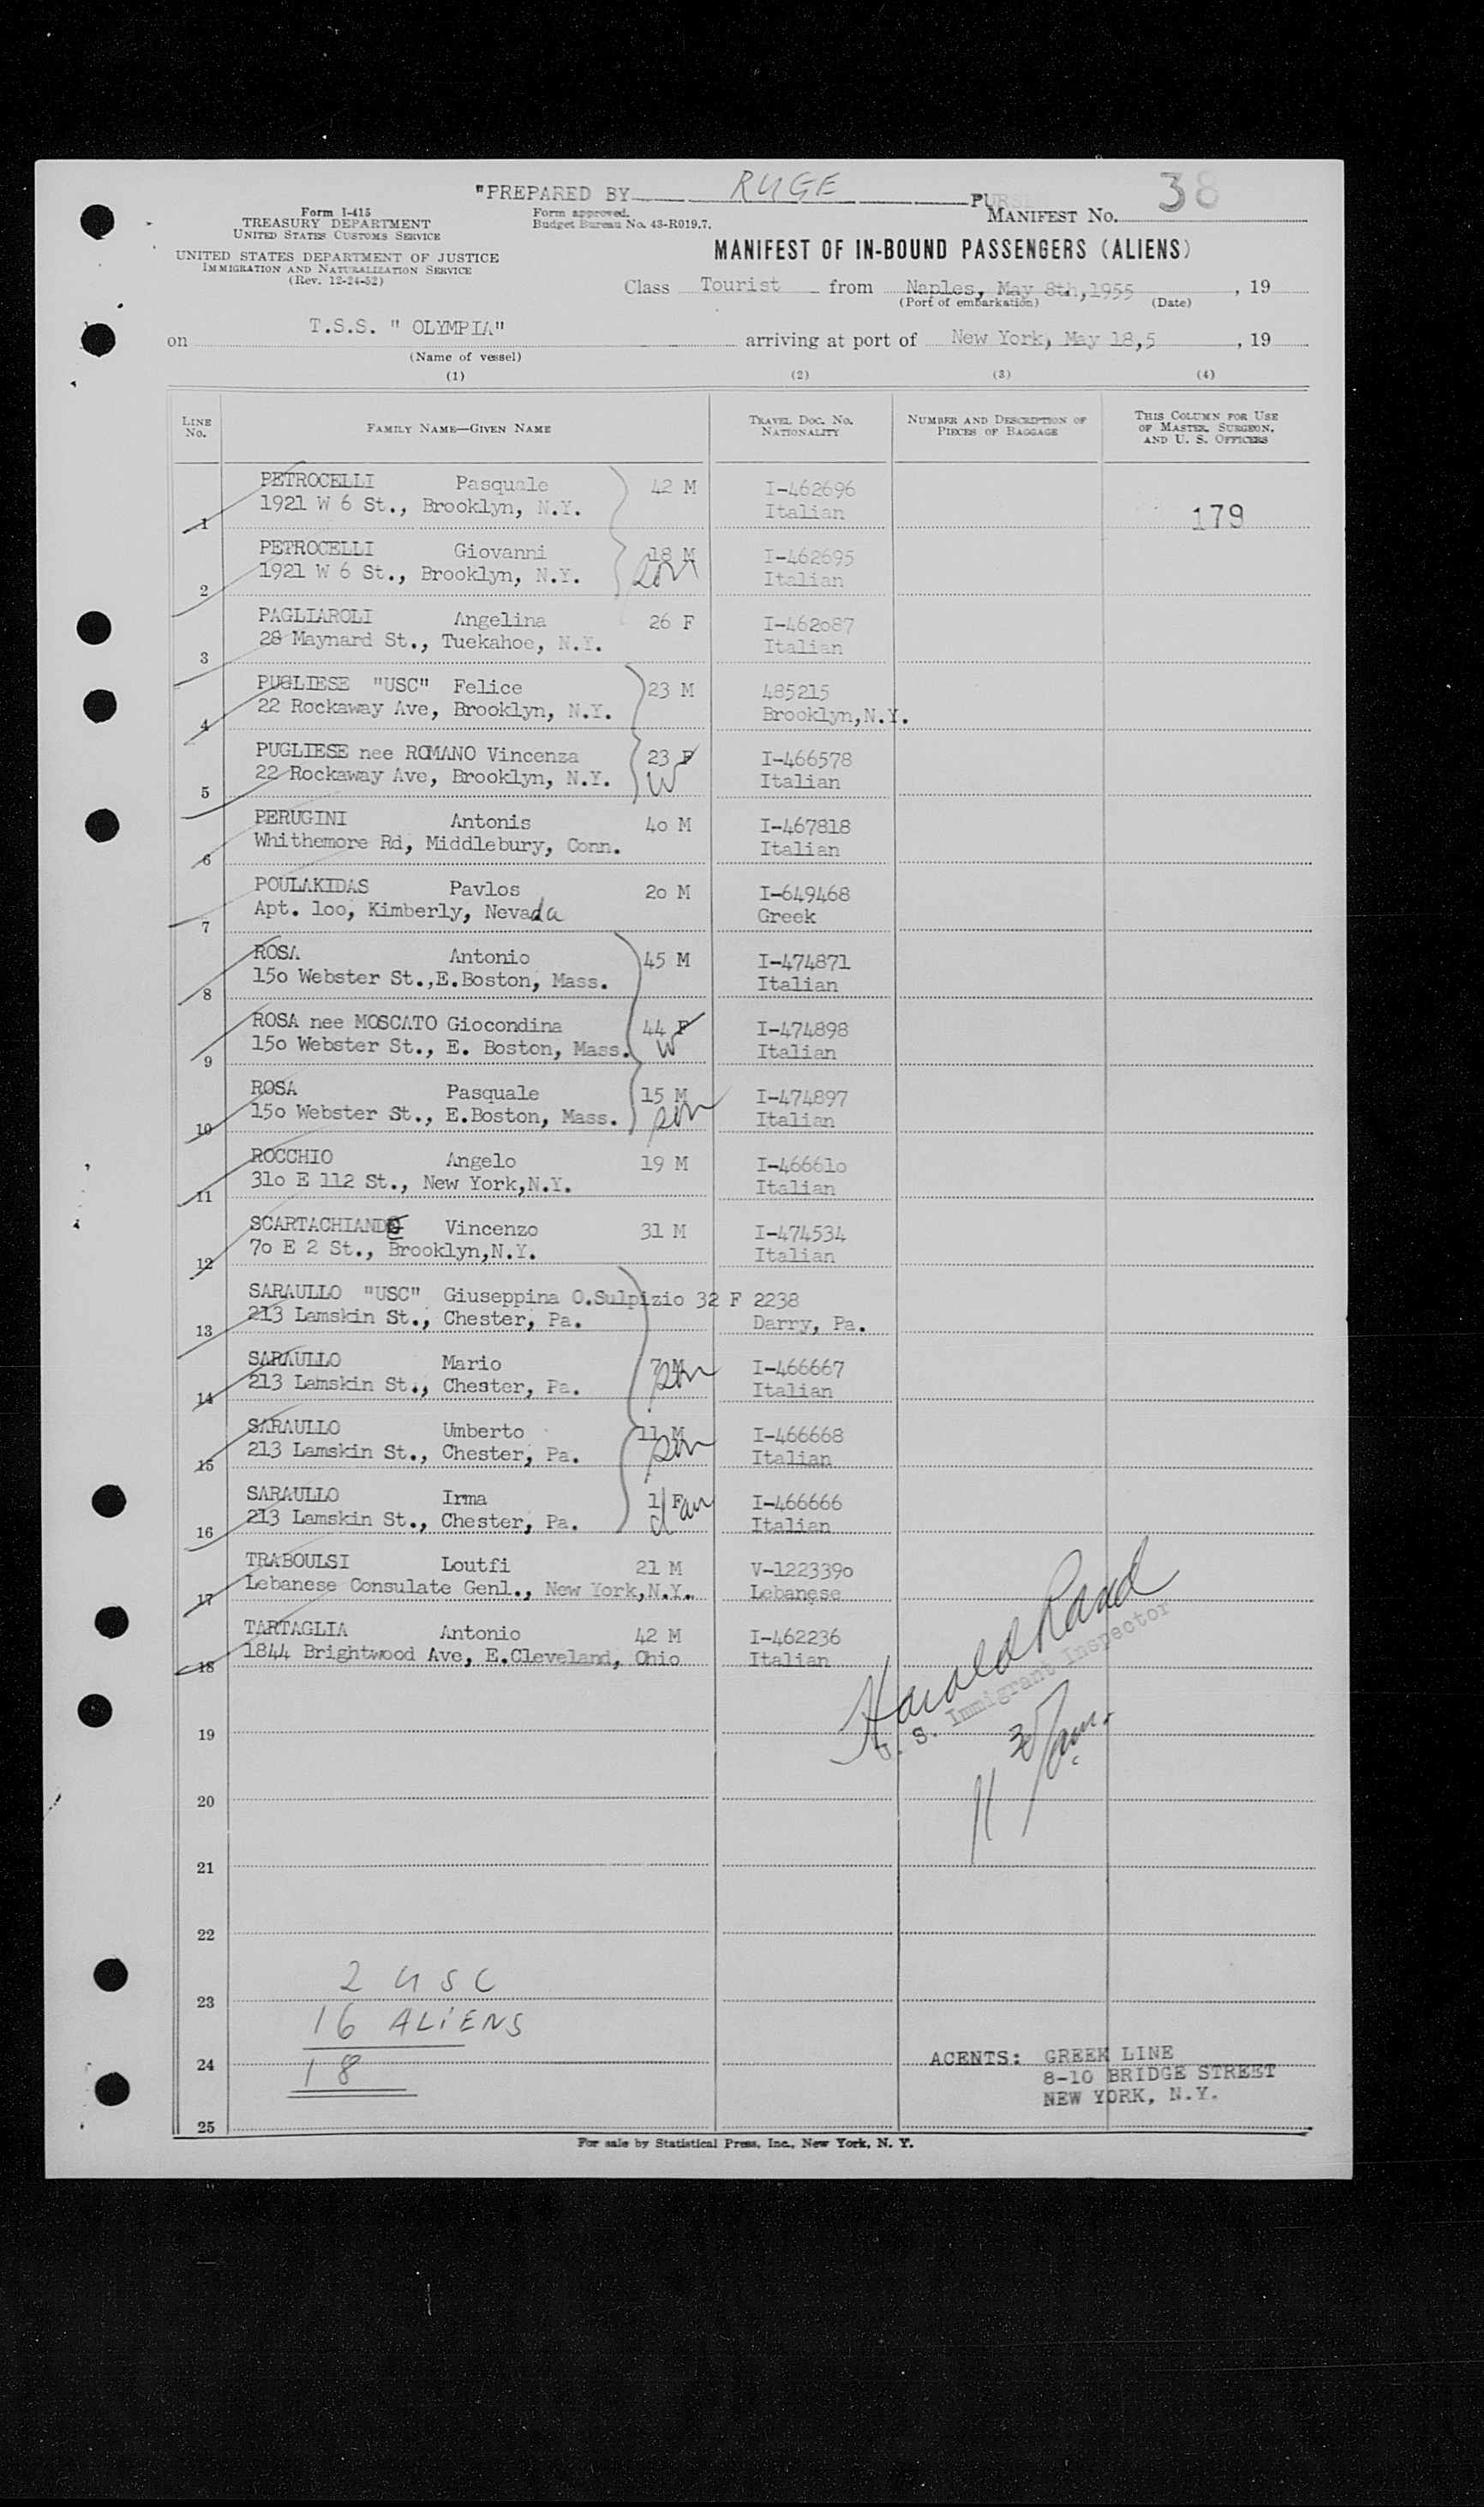 "PREPARED BY RUGE PURS
MANIFEST No. 38
Form I-415
TREASURY DEPARTMENT
UNITED STATES CUSTOMS SERVICE
Form approved.
Budget Bureau No. 43-R019.7.
UNITED STATES DEPARTMENT OF JUSTICE
IMMIGRATION AND NATURALIZATION SERVICE
(Rev. 12-24-52)
MANIFEST OF IN-BOUND PASSENGERS (ALIENS)
Class Tourist from Naples, May 8th,1955, 19
(Port of embarkation) (Date)
on T.S.S. " OLYMPIA" arriving at port of New York, May 18,5, 19
(Name of vessel)
(1) (2) (3) (4)
LINE No. FAMILY NAME—GIVEN NAME TRAVEL DOC. NO. NATIONALITY NUMBER AND DESCRIPTION OF PIECES OF BAGGAGE THIS COLUMN FOR USE OF MASTER, SURGEON, AND U. S. OFFICERS
PETROCELLI Pasquale 42 M I-462696
1 1921 W 6 St., Brooklyn, N.Y. Italian 179
PETROCELLI Giovanni 18 M I-462695
2 1921 W 6 St., Brooklyn, N.Y. son Italian
PAGLIAROLI Angelina 26 F I-462o87
3 28 Maynard St., Tuekahoe, N.Y. Italian
PUGLIESE "USC" Felice 23 M 485215
4 22 Rockaway Ave, Brooklyn, N.Y. Brooklyn,N.Y.
PUGLIESE nee ROMANO Vincenza 23 F I-466578
5 22 Rockaway Ave, Brooklyn, N.Y. W Italian
PERUGINI Antonis 4o M I-467818
6 Whithemore Rd, Middlebury, Conn. Italian
POULAKIDAS Pavlos 2o M I-649468
7 Apt. loo, Kimberly, Nevada Greek
ROSA Antonio 45 M I-474871
8 15o Webster St.,E.Boston, Mass. Italian
ROSA nee MOSCATO Giocondina 44 F I-474898
9 15o Webster St., E. Boston, Mass. W Italian
ROSA Pasquale 15 M I-474897
10 15o Webster St., E.Boston, Mass. son Italian
ROCCHIO Angelo 19 M I-46661o
11 31o E 112 St., New York,N.Y. Italian
SCARTACHIANDE Vincenzo 31 M I-474534
12 7o E 2 St., Brooklyn,N.Y. Italian
SARAULLO "USC" Giuseppina O.Sulpizio 32 F 2238
13 213 Lamskin St., Chester, Pa. Darry, Pa.
SARAULLO Mario 7 M I-466667
14 213 Lamskin St., Chester, Pa. son Italian
SARAULLO Umberto 11 M I-466668
15 213 Lamskin St., Chester, Pa. son Italian
SARAULLO Irma 1 F I-466666
16 213 Lamskin St., Chester, Pa. Italian
TRABOULSI Loutfi 21 M V-122339o
17 Lebanese Consulate Genl., New York,N.Y. Lebanese
TARTAGLIA Antonio 42 M I-462236
18 1844 Brightwood Ave, E.Cleveland, Ohio Italian
Harold Rand
U. S. Immigrant Inspector
19
11 30/am.
20
21
22
2 USC
23
16 ALIENS
24
18
AGENTS: GREEK LINE
8-10 BRIDGE STREET
NEW YORK, N.Y.
25
For sale by Statistical Press, Inc., New York, N. Y.